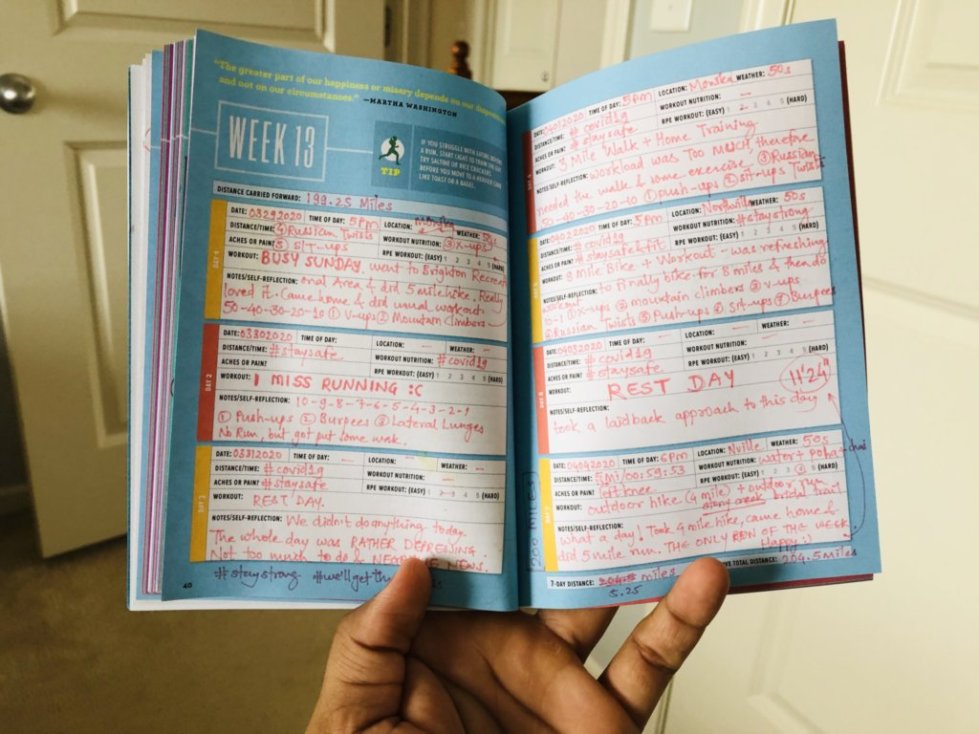 "The greater part of our happiness or misery depends on our
and not on our circumstances." —MARTHA WASHINGTON
WEEK 13
TIP
IF YOU STRUGGLE WITH EATING BEFORE
A RUN, START LIGHT TO TRAIN THE GUT.
TRY SALTINE OR RICE CRACKERS
BEFORE YOU MOVE TO A HEAVIER CARB
LIKE TOAST OR A BAGEL.
DISTANCE CARRIED FORWARD: 199.25 Miles
DAY 1
DATE: 03292020 TIME OF DAY: 5pm LOCATION: WEATHER: 50s
DISTANCE/TIME: ④ Russian Twists WORKOUT NUTRITION: ③ X-ups
ACHES OR PAIN? ⑤ SIT-ups RPE WORKOUT: (EASY) 1 2 3 4 5 (HARD)
WORKOUT: BUSY SUNDAY. went to Brighton Recreat
NOTES/SELF-REFLECTION: onal Area & did 5 mile hike. Really
loved it. Came home & did usual workout.
50-40-30-20-10 ① V-ups ② Mountain Climbers
DAY 2
DATE: 03302020 TIME OF DAY: — LOCATION: — WEATHER: —
DISTANCE/TIME: #staysafe WORKOUT NUTRITION: #covid19
ACHES OR PAIN? RPE WORKOUT: (EASY) 1 2 3 4 5 (HARD)
WORKOUT: I MISS RUNNING :C
NOTES/SELF-REFLECTION: 10-9-8-7-6-5-4-3-2-1
① Push-ups ② Burpees ③ Lateral Lunges
No Run, but got put some work.
DAY 3
DATE: 03312020 TIME OF DAY: — LOCATION: — WEATHER: —
DISTANCE/TIME: #covid19 WORKOUT NUTRITION: —
ACHES OR PAIN? #staysafe RPE WORKOUT: (EASY) 1 2 3 4 5 (HARD)
WORKOUT: REST DAY.
NOTES/SELF-REFLECTION: We didn't do anything today.
The whole day was RATHER DEPRESSING.
Not too much to do & NEGATIVE NEWS.
40 #staystrong #we'll get
DATE: 04012020 TIME OF DAY: 5pm LOCATION: WEATHER: 50s
DISTANCE/TIME: #covid19 WORKOUT NUTRITION: —
ACHES OR PAIN? #staysafe RPE WORKOUT: (EASY) 1 2 3 4 5 (HARD)
WORKOUT: 3 Mile Walk + Home Training
NOTES/SELF-REFLECTION: workload was TOO MUCH, therefore
needed the walk & some exercise. ③ Russian
50-40-30-20-10 ① push-ups ② sit-ups Twists
DATE: 04022020 TIME OF DAY: 5pm LOCATION: Northville WEATHER: 50s
DISTANCE/TIME: #covid19 WORKOUT NUTRITION: #staystrong
ACHES OR PAIN? #staysafe&fit RPE WORKOUT: (EASY) 1 2 3 4 5 (HARD)
WORKOUT: 8 mile Bike + Workout - was refreshing
NOTES/SELF-REFLECTION: to finally bike for 8 miles & then do
workout
10-1 ① X-ups ② mountain climbers ③ V-ups
④ Russian Twists ⑤ Push-ups ⑥ Sit-ups ⑦ Burpees
DATE: 04032020 TIME OF DAY: — LOCATION: — WEATHER: —
DISTANCE/TIME: #covid19 WORKOUT NUTRITION: —
ACHES OR PAIN? #staysafe RPE WORKOUT: (EASY) 1 2 3 4 5 (HARD)
WORKOUT: REST DAY 11'24"
NOTES/SELF-REFLECTION:
took a laidback approach to this day
DATE: 04042020 TIME OF DAY: 6pm LOCATION: Nville WEATHER: 50s
DISTANCE/TIME: 5mi/00:59:53 WORKOUT NUTRITION: water +
ACHES OR PAIN? left knee RPE WORKOUT: (EASY) 1 2 3 4 5 (HARD)
WORKOUT: outdoor hike (4 mile) + outdoor run
bridal trail
NOTES/SELF-REFLECTION: what a day! Took 4 mile hike, came home &
did 5 mile run. THE ONLY RUN OF THE WEEK.
Happy :)
200 MILES
7-DAY DISTANCE: miles
5.25
TOTAL DISTANCE: 204.5 miles